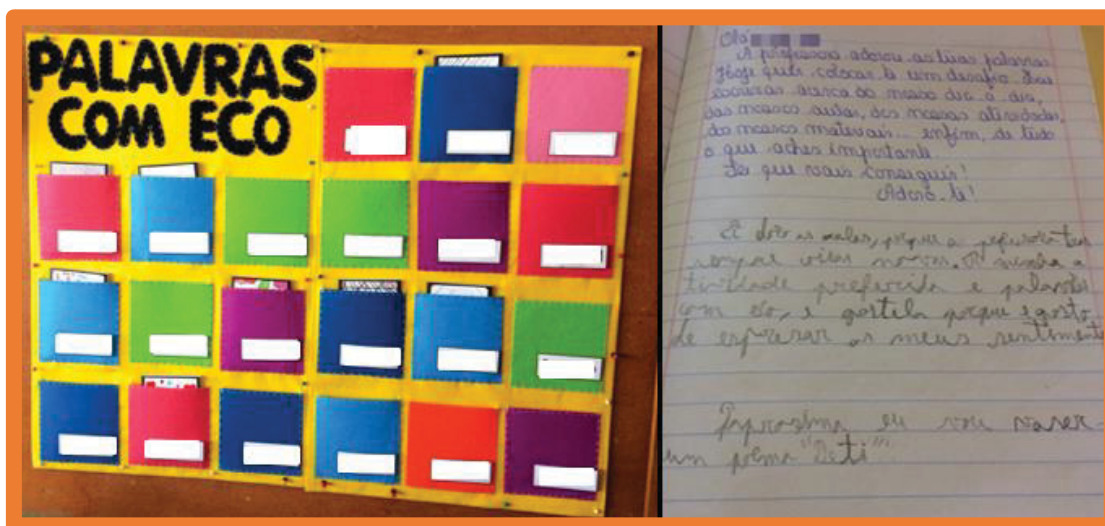 PALAVRAS
COM ECO
Olá
A professora adorou as tuas palavras
Hoje quer colocar-te um desafio. Que
escrevas acerca do nosso dia a dia,
das nossas aulas, das nossas atividades,
do nossos materiais... enfim, de tudo
o que aches importante.
Sei que vais conseguir!
Adoro-te!
as aulas, porque a
novas. A minha a
tividade preferida é palavras
com eco, e porque gosto
de espresar os meus sentimentos
eu vou
um poema